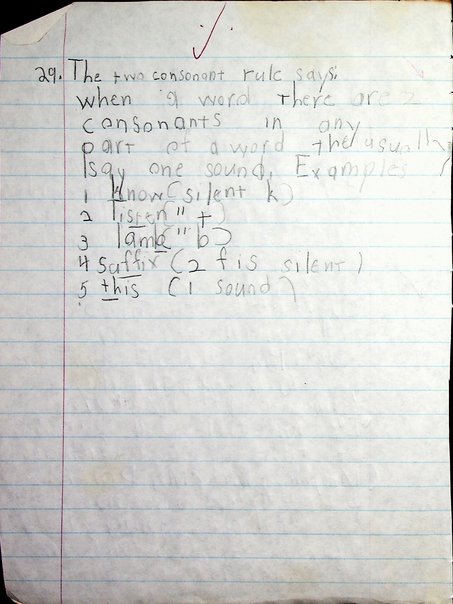 29. The two consonant rule says:
when a word there are 2
consonants in any
part of a word the usually
say one sound. Examples
1 know (silent k)
2 listen (" t)
3 lamb (" b)
4 saffix (2 f is silent)
5 this (1 sound)